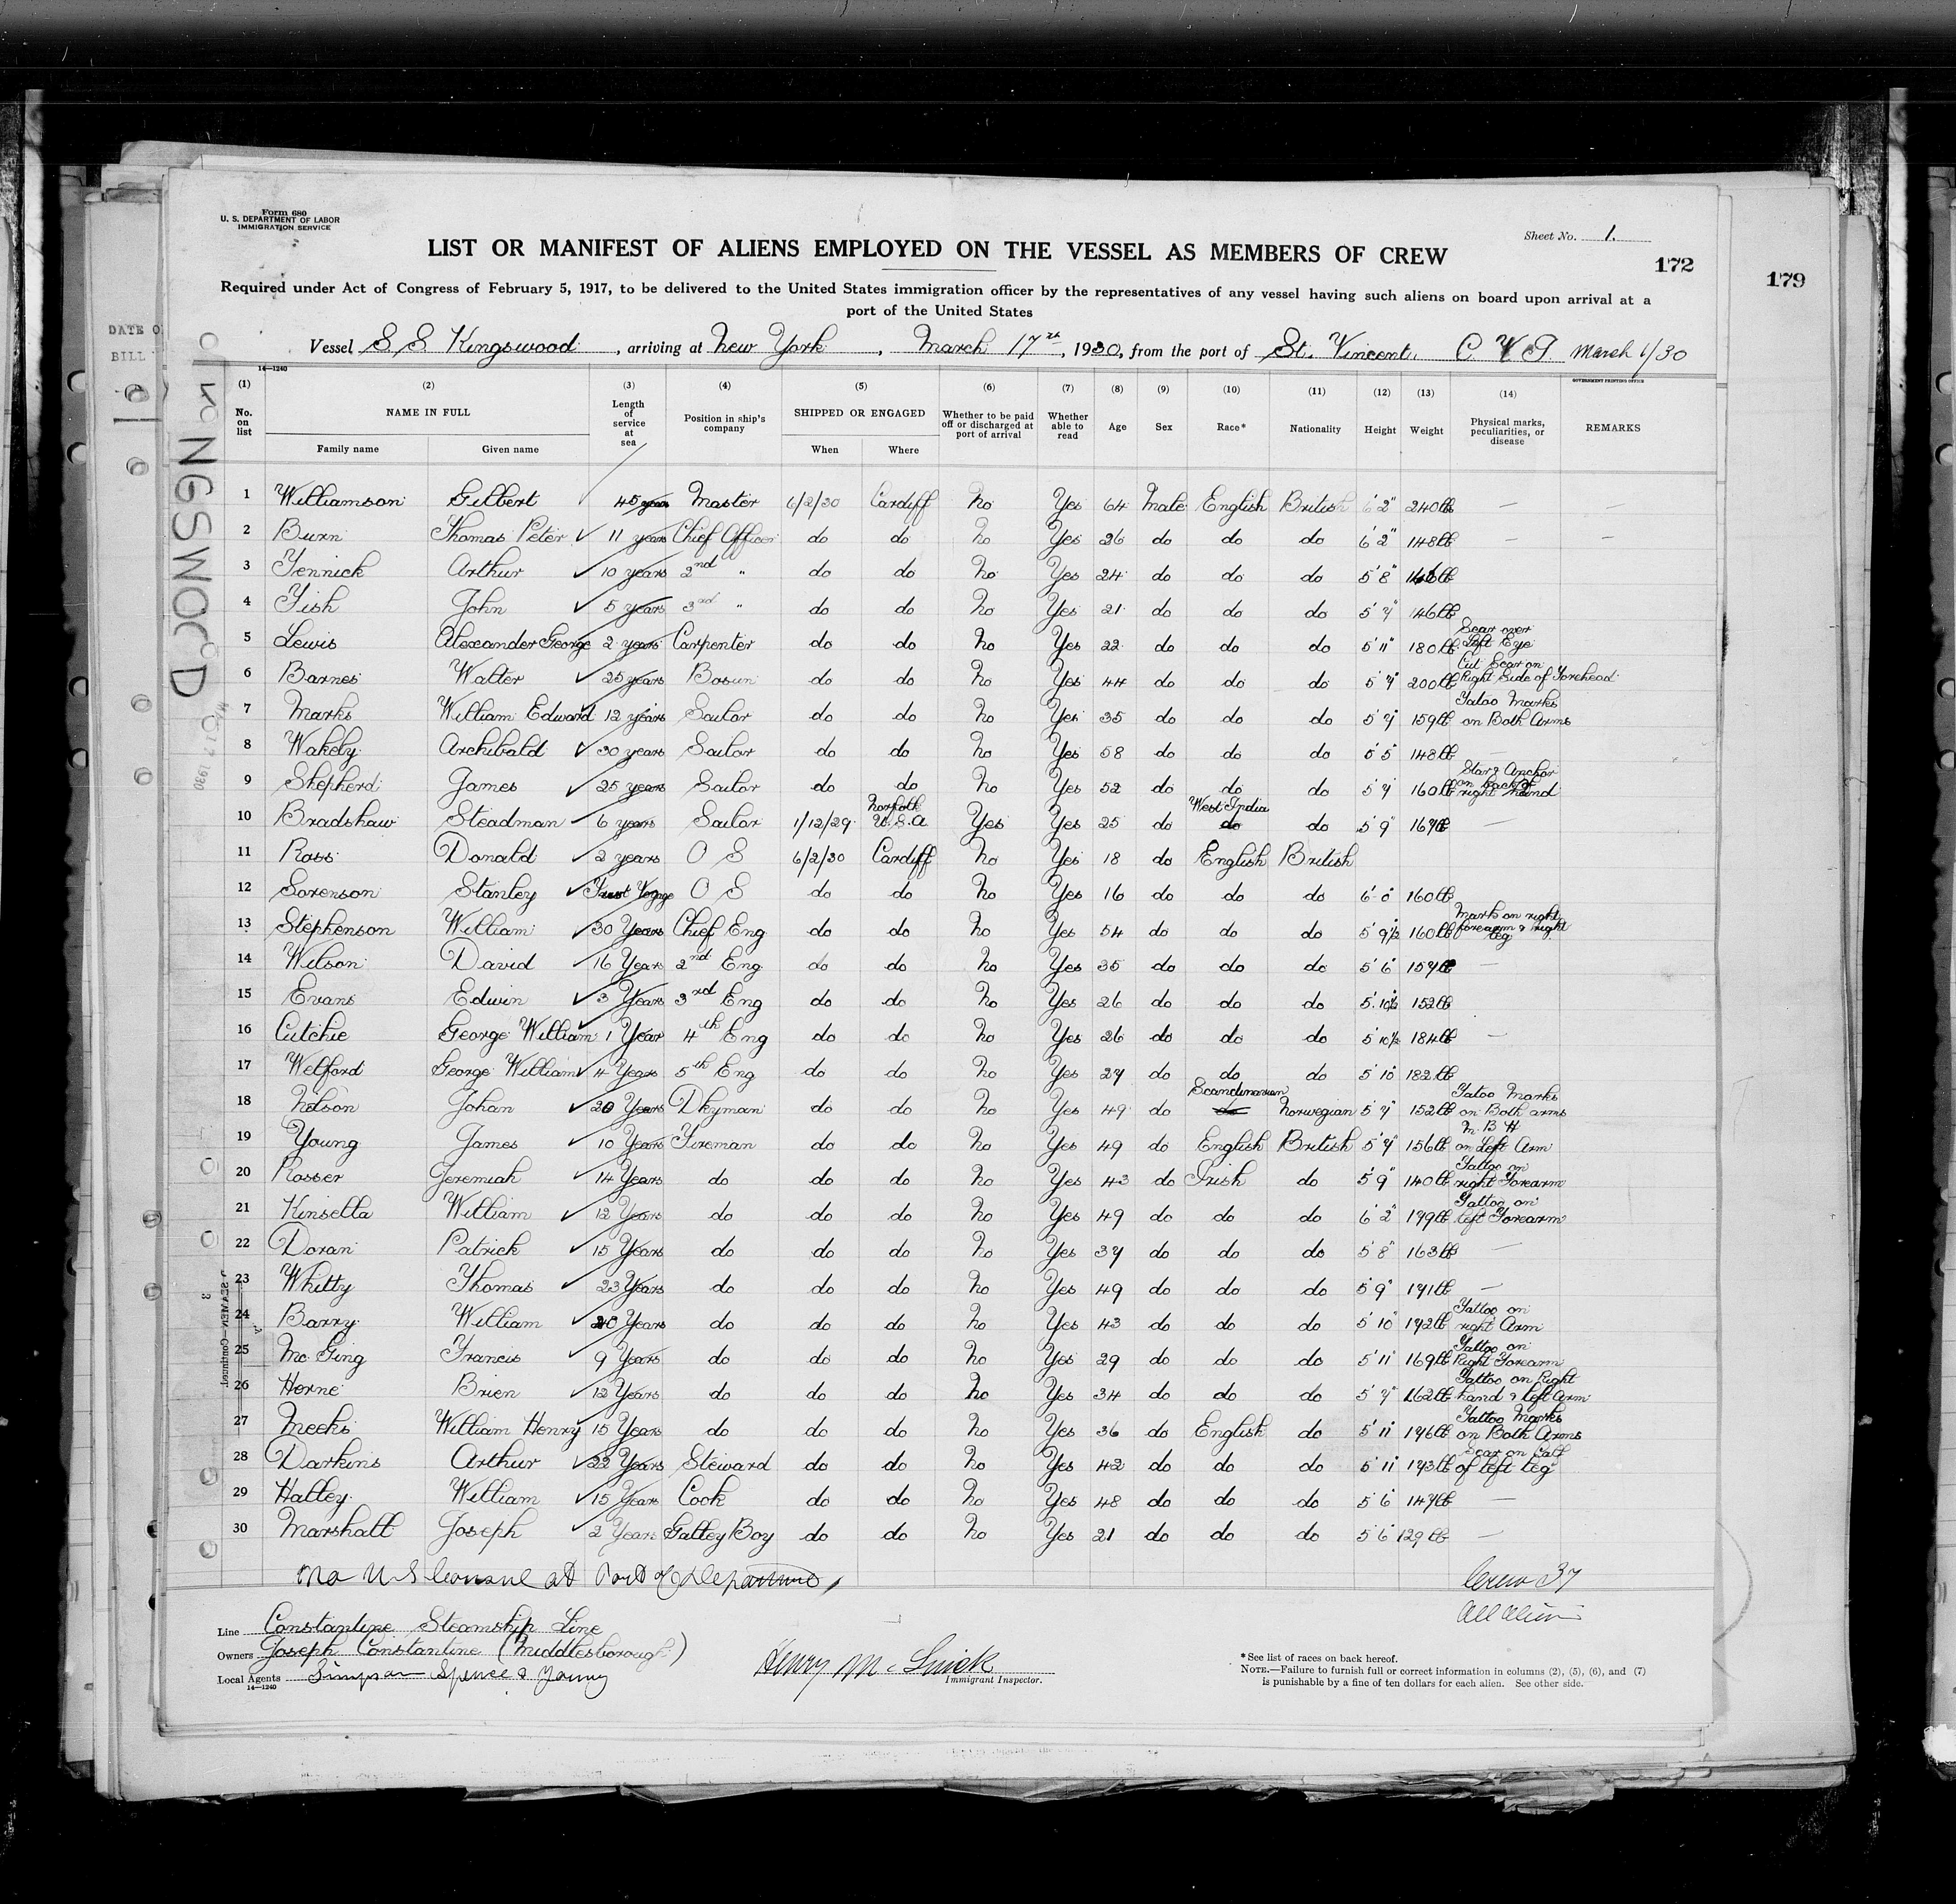 Form 680
U. S. DEPARTMENT OF LABOR
IMMIGRATION SERVICE
Sheet No. 1.
LIST OR MANIFEST OF ALIENS EMPLOYED ON THE VESSEL AS MEMBERS OF CREW
172
179
Required under Act of Congress of February 5, 1917, to be delivered to the United States immigration officer by the representatives of any vessel having such aliens on board upon arrival at a
port of the United States
DATE O
BILL
Vessel S S Kingswood, arriving at New York, March 17th, 1930, from the port of St. Vincent. C V I March 6/30
14—1240
GOVERNMENT PRINTING OFFICE
(1) (2) (3) (4) (5) (6) (7) (8) (9) (10) (11) (12) (13) (14)
No. on list NAME IN FULL Length of service at sea Position in ship's company SHIPPED OR ENGAGED Whether to be paid off or discharged at port of arrival Whether able to read Age Sex Race* Nationality Height Weight Physical marks, peculiarities, or disease REMARKS
Family name Given name When Where
1 Williamson Gilbert 45 years Master 6/2/30 Cardiff No Yes 64 Male English British 6' 2" 240 lb — —
2 Burn Thomas Peter ✓ 11 years Chief Officer do do No Yes 26 do do do 6' 2" 148 lb — —
3 Fennick Arthur ✓ 10 years 2nd " do do No Yes 24 do do do 5' 8" lb
4 Fish John ✓ 5 years 3rd " do do No Yes 21 do do do 5' 7" 146 lb
5 Lewis Alexander George 2 years Carpenter do do No Yes 22 do do do 5' 11" 180 lb Scar over Left Eye
6 Barnes Walter ✓ 25 years Bosun do do No Yes 44 do do do 5' 7" 200 lb Cut Scar on Right Side of Forehead
7 Marks William Edward 12 years Sailor do do No Yes 35 do do do 5' 7" 159 lb Tatoo Marks on Both Arms
8 Wakely Archibald ✓ 30 years Sailor do do No Yes 58 do do do 5' 5" 148 lb —
9 Shepherd James ✓ 25 years Sailor do do No Yes 52 do do do 5' 7" 160 lb Star & Anchor on back of right hand
10 Bradshaw Steadman ✓ 6 years Sailor 1/12/29 Norfolk U.S.A Yes Yes 25 do West India do do 5' 9" 167 lb —
11 Ross Donald ✓ 2 years O S 6/2/30 Cardiff No Yes 18 do English British
12 Sorenson Stanley ✓ First Voyage O S do do No Yes 16 do do do 6' 0" 160 lb
13 Stephenson William ✓ 30 Years Chief Eng do do No Yes 54 do do do 5' 9½ 160 lb Mark on right forearm & right leg
14 Wilson David ✓ 16 Years 2nd Eng do do No Yes 35 do do do 5' 6" 157 lb —
15 Evans Edwin ✓ 3 Years 3rd Eng do do No Yes 26 do do do 5' 10½ 152 lb
16 Cutchie George William 1 Year 4th Eng do do No Yes 26 do do do 5' 10½ 184 lb —
17 Welford George William ✓ 4 Years 5th Eng do do No Yes 27 do do do 5' 10" 182 lb
18 Nelson Johan ✓ 20 Years Dkyman do do No Yes 49 do Scandinavian do Norwegian 5' 7" 152 lb Tatoo Marks on Both arms
19 Young James ✓ 10 Years Fireman do do No Yes 49 do English British 5' 7" 156 lb M. B H on Left Arm
20 Rosser Jeremiah ✓ 14 Years do do do No Yes 43 do Irish do 5' 9" 140 lb Tattoo on right Forearm
21 Kinsella William ✓ 12 Years do do do No Yes 49 do do do 6' 2" 179 lb Tattoo on left Forearm
22 Doran Patrick ✓ 15 Years do do do No Yes 37 do do do 5' 8" 163 lb —
23 Whitty Thomas ✓ 23 Years do do do No Yes 49 do do do 5' 9" 171 lb —
24 Barry William ✓ 20 Years do do do No Yes 43 do do do 5' 10" 172 lb Tattoo on right Arm
25 Mc Ging Francis ✓ 9 Years do do do No Yes 29 do do do 5' 11" 169 lb Tattoo on Right Forearm
26 Horne Brien ✓ 12 Years do do do No Yes 34 do do do 5' 7" 162 lb Tattoo on Right hand & left Arm
27 Meeks William Henry 15 Years do do do No Yes 36 do English do 5' 11" 176 lb Tattoo Marks on Both Arms
28 Darkins Arthur ✓ 22 Years Steward do do No Yes 42 do do do 5' 11" 173 lb Scar on Calf of left leg
29 Halley William ✓ 15 Years Cook do do No Yes 48 do do do 5' 6" 147 lb —
30 Marshall Joseph ✓ 2 Years Galley Boy do do No Yes 21 do do do 5' 6" 129 lb —
No U S Consul at Port of Departure
Crew 37
All alien
Line Constantine Steamship Line
Owners Joseph Constantine (Middlesborough)
Local Agents Simpson Spence & Young
14—1240
Henry Mc
Immigrant Inspector.
*See list of races on back hereof.
NOTE.—Failure to furnish full or correct information in columns (2), (5), (6), and (7)
is punishable by a fine of ten dollars for each alien. See other side.
KINGSWOOD